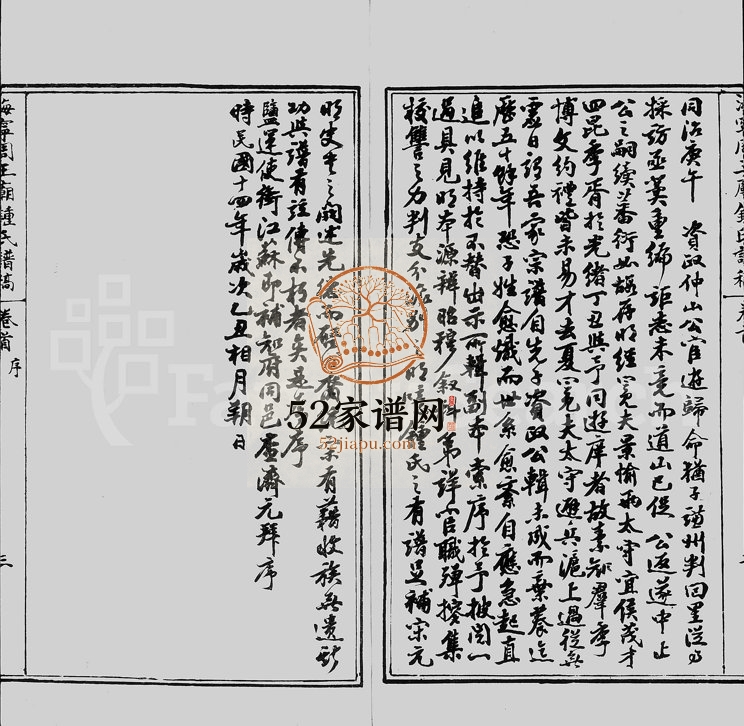 同治庚午 資政仲山公宦遊歸命猶子蓮州判回里從事
採訪亟冀重編詎志未竟而道山已促 公返遂中止
公之嗣續蕃衍如 存明經冕夫景愉兩太守宜侯茂才
四昆季胥於光緒丁丑與予同遊庠者故素知群季
博文約禮皆未易才去夏冕夫太守避兵滬上過從無
虛日謂吾家宗譜自先子資政公輯未成而棄養迄
歷五十餘年恐子姓愈熾而世系愈紊自應急起直
追以維持於不替出示所輯副本索序於予披閱一
過具見明本源辨昭穆 第詳宦職殫搜集
校讎之力判支分 明 鍾氏之有譜足補宋元
明史 之闕述先 而 有藉收族無遺斯
功與譜有 傳不朽者矣是 序
鹽運使銜江蘇即補知府同邑 濟元拜序
時民國十四年歲次乙丑相月朔日
海寧周王廟鍾氏譜稿 卷首 序
三
52家谱网
52jiapu.com